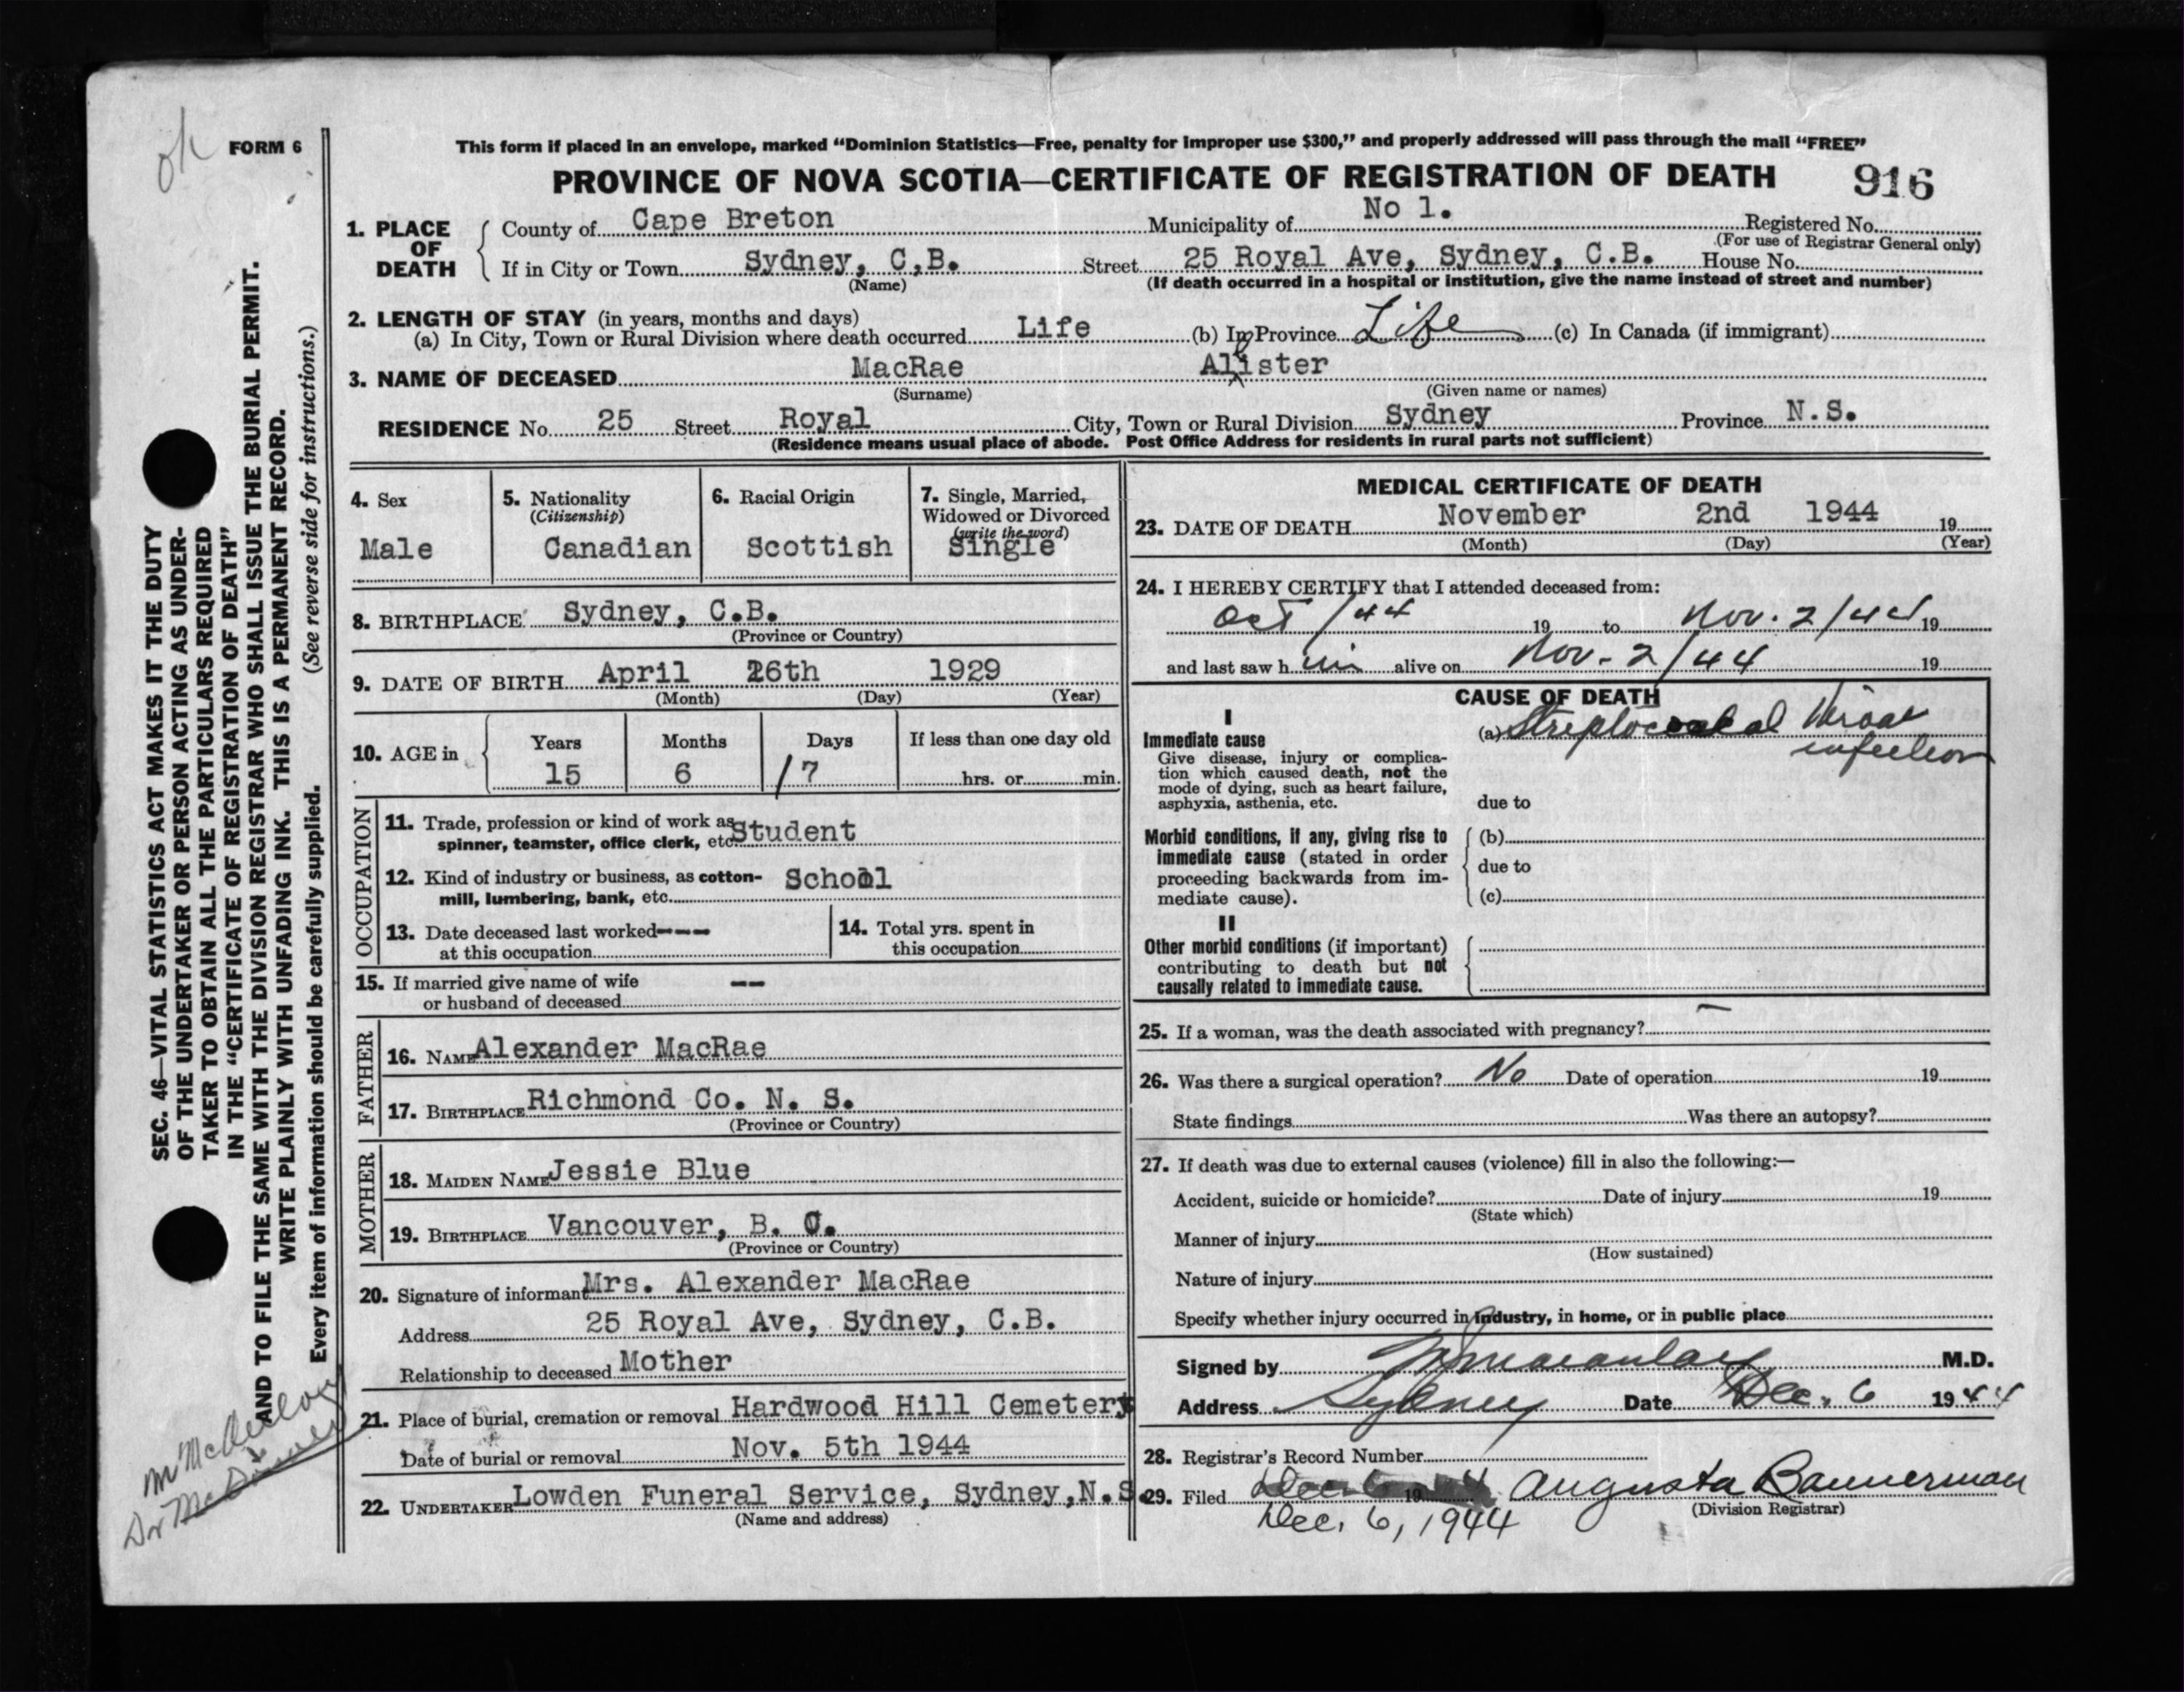 ok
FORM 6
This form if placed in an envelope, marked “Dominion Statistics—Free, penalty for improper use $300,” and properly addressed will pass through the mail “FREE”
PROVINCE OF NOVA SCOTIA—CERTIFICATE OF REGISTRATION OF DEATH
916
1. PLACE OF DEATH
County of Cape Breton Municipality of No 1. Registered No.
(For use of Registrar General only)
If in City or Town Sydney, C,B. Street 25 Royal Ave, Sydney, C.B. House No.
(Name) (If death occurred in a hospital or institution, give the name instead of street and number)
2. LENGTH OF STAY (in years, months and days)
(a) In City, Town or Rural Division where death occurred Life (b) In Province Life (c) In Canada (if immigrant)
3. NAME OF DECEASED MacRae Alister
(Surname) (Given name or names)
RESIDENCE No. 25 Street Royal City, Town or Rural Division Sydney Province N.S.
(Residence means usual place of abode. Post Office Address for residents in rural parts not sufficient)
4. Sex
Male
5. Nationality
(Citizenship)
Canadian
6. Racial Origin
Scottish
7. Single, Married,
Widowed or Divorced
(write the word)
Single
8. BIRTHPLACE Sydney, C.B.
(Province or Country)
9. DATE OF BIRTH April 26th 1929
(Month) (Day) (Year)
10. AGE in
Years Months Days If less than one day old
15 6 17 hrs. or min.
OCCUPATION
11. Trade, profession or kind of work as
spinner, teamster, office clerk, etc. Student
12. Kind of industry or business, as cotton-
mill, lumbering, bank, etc. School
13. Date deceased last worked----
at this occupation
14. Total yrs. spent in
this occupation
15. If married give name of wife --
or husband of deceased
FATHER
16. NAME Alexander MacRae
17. BIRTHPLACE Richmond Co. N. S.
(Province or Country)
MOTHER
18. MAIDEN NAME Jessie Blue
19. BIRTHPLACE Vancouver, B. C.
(Province or Country)
20. Signature of informant Mrs. Alexander MacRae
Address 25 Royal Ave, Sydney, C.B.
Relationship to deceased Mother
21. Place of burial, cremation or removal Hardwood Hill Cemetery
Date of burial or removal Nov. 5th 1944
22. UNDERTAKER Lowden Funeral Service, Sydney,N.S
(Name and address)
MEDICAL CERTIFICATE OF DEATH
23. DATE OF DEATH November 2nd 1944 19
(Month) (Day) (Year)
24. I HEREBY CERTIFY that I attended deceased from:
Oct /44 19 to Nov. 2/44 19
and last saw him alive on Nov - 2/44 19
CAUSE OF DEATH
I
Immediate cause
Give disease, injury or complica-
tion which caused death, not the
mode of dying, such as heart failure,
asphyxia, asthenia, etc.
(a) Streptococcal throat
infection
due to
Morbid conditions, if any, giving rise to
immediate cause (stated in order
proceeding backwards from im-
mediate cause).
(b)
due to
(c)
II
Other morbid conditions (if important)
contributing to death but not
causally related to immediate cause.
25. If a woman, was the death associated with pregnancy? —
26. Was there a surgical operation? No Date of operation 19
State findings Was there an autopsy?
27. If death was due to external causes (violence) fill in also the following:—
Accident, suicide or homicide? Date of injury 19
(State which)
Manner of injury
(How sustained)
Nature of injury
Specify whether injury occurred in industry, in home, or in public place
Signed by M.D.
Address Sydney Date Dec. 6 1944
28. Registrar's Record Number
29. Filed 19 Augusta Bannerman
(Division Registrar)
Dec. 6, 1944
SEC. 46—VITAL STATISTICS ACT MAKES IT THE DUTY
OF THE UNDERTAKER OR PERSON ACTING AS UNDER-
TAKER TO OBTAIN ALL THE PARTICULARS REQUIRED
IN THE “CERTIFICATE OF REGISTRATION OF DEATH”
AND TO FILE THE SAME WITH THE DIVISION REGISTRAR WHO SHALL ISSUE THE BURIAL PERMIT.
WRITE PLAINLY WITH UNFADING INK. THIS IS A PERMANENT RECORD.
Every item of information should be carefully supplied. (See reverse side for instructions.)